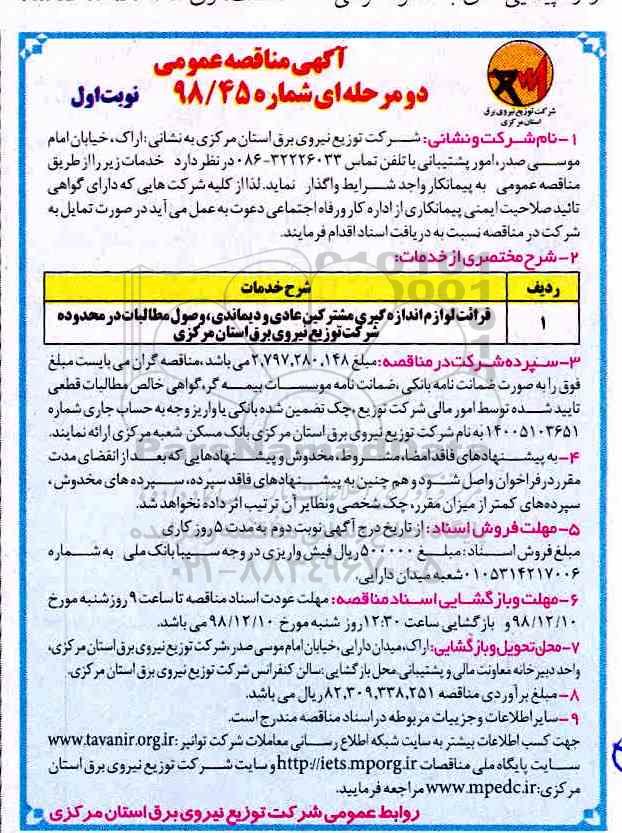 آگهی مناقصه عمومی
دو مرحله ای شماره ۹۸/۴۵
نوبت اول
شرکت توزیع نیروی برق
استان مرکزی
۱- نام شرکت و نشانی: شرکت توزیع نیروی برق استان مرکزی به نشانی: اراک، خیابان امام
موسی صدر، امور پشتیبانی با تلفن تماس ۳۲۲۲۶۰۳۳-۰۸۶ در نظر دارد خدمات زیر را از طریق
مناقصه عمومی به پیمانکار واجد شرایط واگذار نماید. لذا از کلیه شرکت هایی که دارای گواهی
تائید صلاحیت ایمنی پیمانکاری از اداره کار و رفاه اجتماعی دعوت به عمل می آید در صورت تمایل به
شرکت در مناقصه نسبت به دریافت اسناد اقدام فرمایند.
۲- شرح مختصری از خدمات:
ردیف شرح خدمات
۱ قرائت لوازم اندازه گیری مشترکین عادی و دیماندی، وصول مطالبات در محدوده
شرکت توزیع نیروی برق استان مرکزی
۳- سپرده شرکت در مناقصه: مبلغ ۲,۷۹۷,۲۸۰,۱۴۸ می باشد، مناقصه گران می بایست مبلغ
فوق را به صورت ضمانت نامه بانکی، ضمانت نامه موسسات بیمه گر، گواهی خالص مطالبات قطعی
تایید شده توسط امور مالی شرکت توزیع، چک تضمین شده بانکی یا واریز وجه به حساب جاری شماره
۱۴۰۰۵۱۰۳۶۵۱ به نام شرکت توزیع نیروی برق استان مرکزی بانک مسکن شعبه مرکزی ارائه نمایند.
۴- به پیشنهادهای فاقد امضاء، مشروط، مخدوش و پیشنهادهایی که بعد از انقضای مدت
مقرر در فراخوان واصل شود و هم چنین به پیشنهادهای فاقد سپرده، سپرده های مخدوش،
سپرده‌های کمتر از میزان مقرر، چک شخصی و نظایر آن ترتیب اثر داده نخواهد شد.
۵- مهلت فروش اسناد: از تاریخ درج آگهی نوبت دوم به مدت ۵ روز کاری
مبلغ فروش اسناد: مبلغ ۵۰۰۰۰۰ ریال فیش واریزی در وجه سیبا بانک ملی به شماره
۰۱۰۵۳۱۴۲۱۷۰۰۶ شعبه میدان دارایی.
۶- مهلت و بازگشایی اسناد مناقصه: مهلت عودت اسناد مناقصه تا ساعت ۹ روز شنبه مورخ
۹۸/۱۲/۱۰ و بازگشایی ساعت ۱۲:۳۰ روز شنبه مورخ ۹۸/۱۲/۱۰ می باشد.
۷- محل تحویل و بازگشایی: اراک، میدان دارایی، خیابان امام موسی صدر، شرکت توزیع نیروی برق استان مرکزی،
واحد دبیرخانه معاونت مالی و پشتیبانی. محل بازگشایی: سالن کنفرانس شرکت توزیع نیروی برق استان مرکزی.
۸- مبلغ برآوردی مناقصه ۸۲,۳۰۹,۳۳۸,۲۵۱ ریال می باشد.
۹- سایر اطلاعات و جزییات مربوطه در اسناد مناقصه مندرج است.
جهت کسب اطلاعات بیشتر به سایت شبکه اطلاع رسانی معاملات شرکت توانیر: www.tavanir.org.ir
سایت پایگاه ملی مناقصات http://iets.mporg.ir و سایت شرکت توزیع نیروی برق استان
مرکزی: www.mpedc.ir مراجعه فرمایید.
روابط عمومی شرکت توزیع نیروی برق استان مرکزی